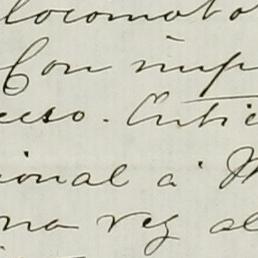 locomoto
Con imp
ceso. Antic
ional á M
na vez al